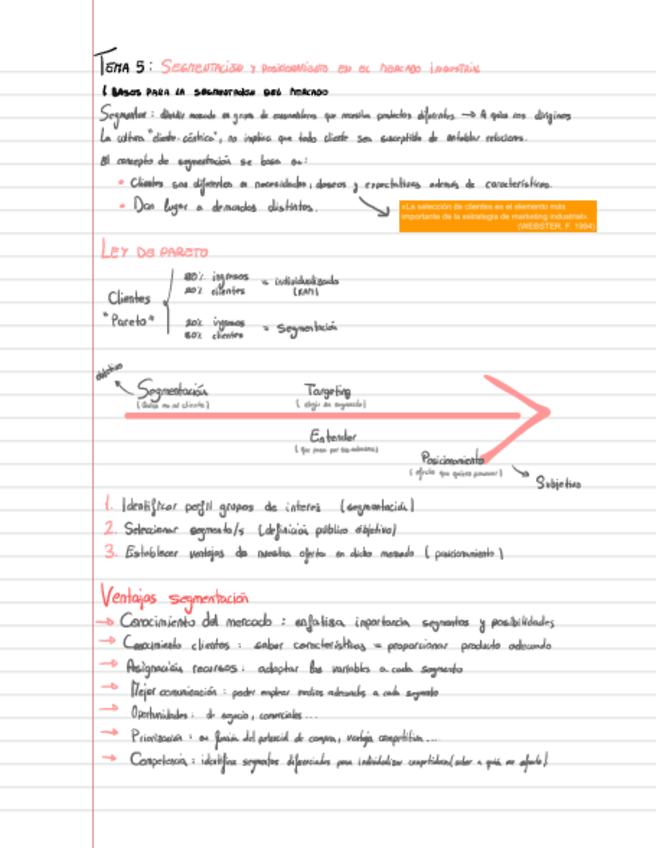 TEMA 5: SEGMENTACIÓN Y POSICIONAMIENTO EN EL MERCADO INDUSTRIAL
1 BASES PARA LA SEGMENTACIÓN DEL MERCADO
Segmentar: dividir mercado en grupos de consumidores que necesitan productos diferentes → A quién nos dirigimos
La cultura "cliente-céntrica", no implica que todo cliente sea susceptible de entablar relaciones.
El concepto de segmentación se basa en:
• Clientes son diferentes en necesidades, deseos y expectativas además de características.
• Dan lugar a demandas distintas.
«La selección de clientes es el elemento más
importante de la estrategia de marketing industrial».
(WEBSTER, F. 1994)
LEY DE PARETO
Clientes
"Pareto"
80% ingresos
20% clientes
= individualizado
(KAM)
20% ingresos
80% clientes
= Segmentación
objetivo
Segmentación
Targeting
(elegir un segmento)
Entender
Posicionamiento
Subjetivo
1. Identificar perfil grupos de interés (segmentación)
2. Seleccionar segmento/s (definición público objetivo)
3. Establecer ventajas de nuestra oferta en dicho mercado (posicionamiento)
Ventajas segmentación
→ Conocimiento del mercado: enfatiza importancia segmentos y posibilidades
→ Conocimiento clientes: saber características = proporcionar producto adecuado
→ Asignación recursos: adaptar las variables a cada segmento
→ Mejor comunicación: poder emplear medios adecuados a cada segmento
→ Oportunidades: de negocio, comerciales...
→ Priorización: en función del potencial de compra, ventaja competitiva...
→ Competencia: identifica segmentos diferenciados para individualizar competidores (saber a quién me enfrento)